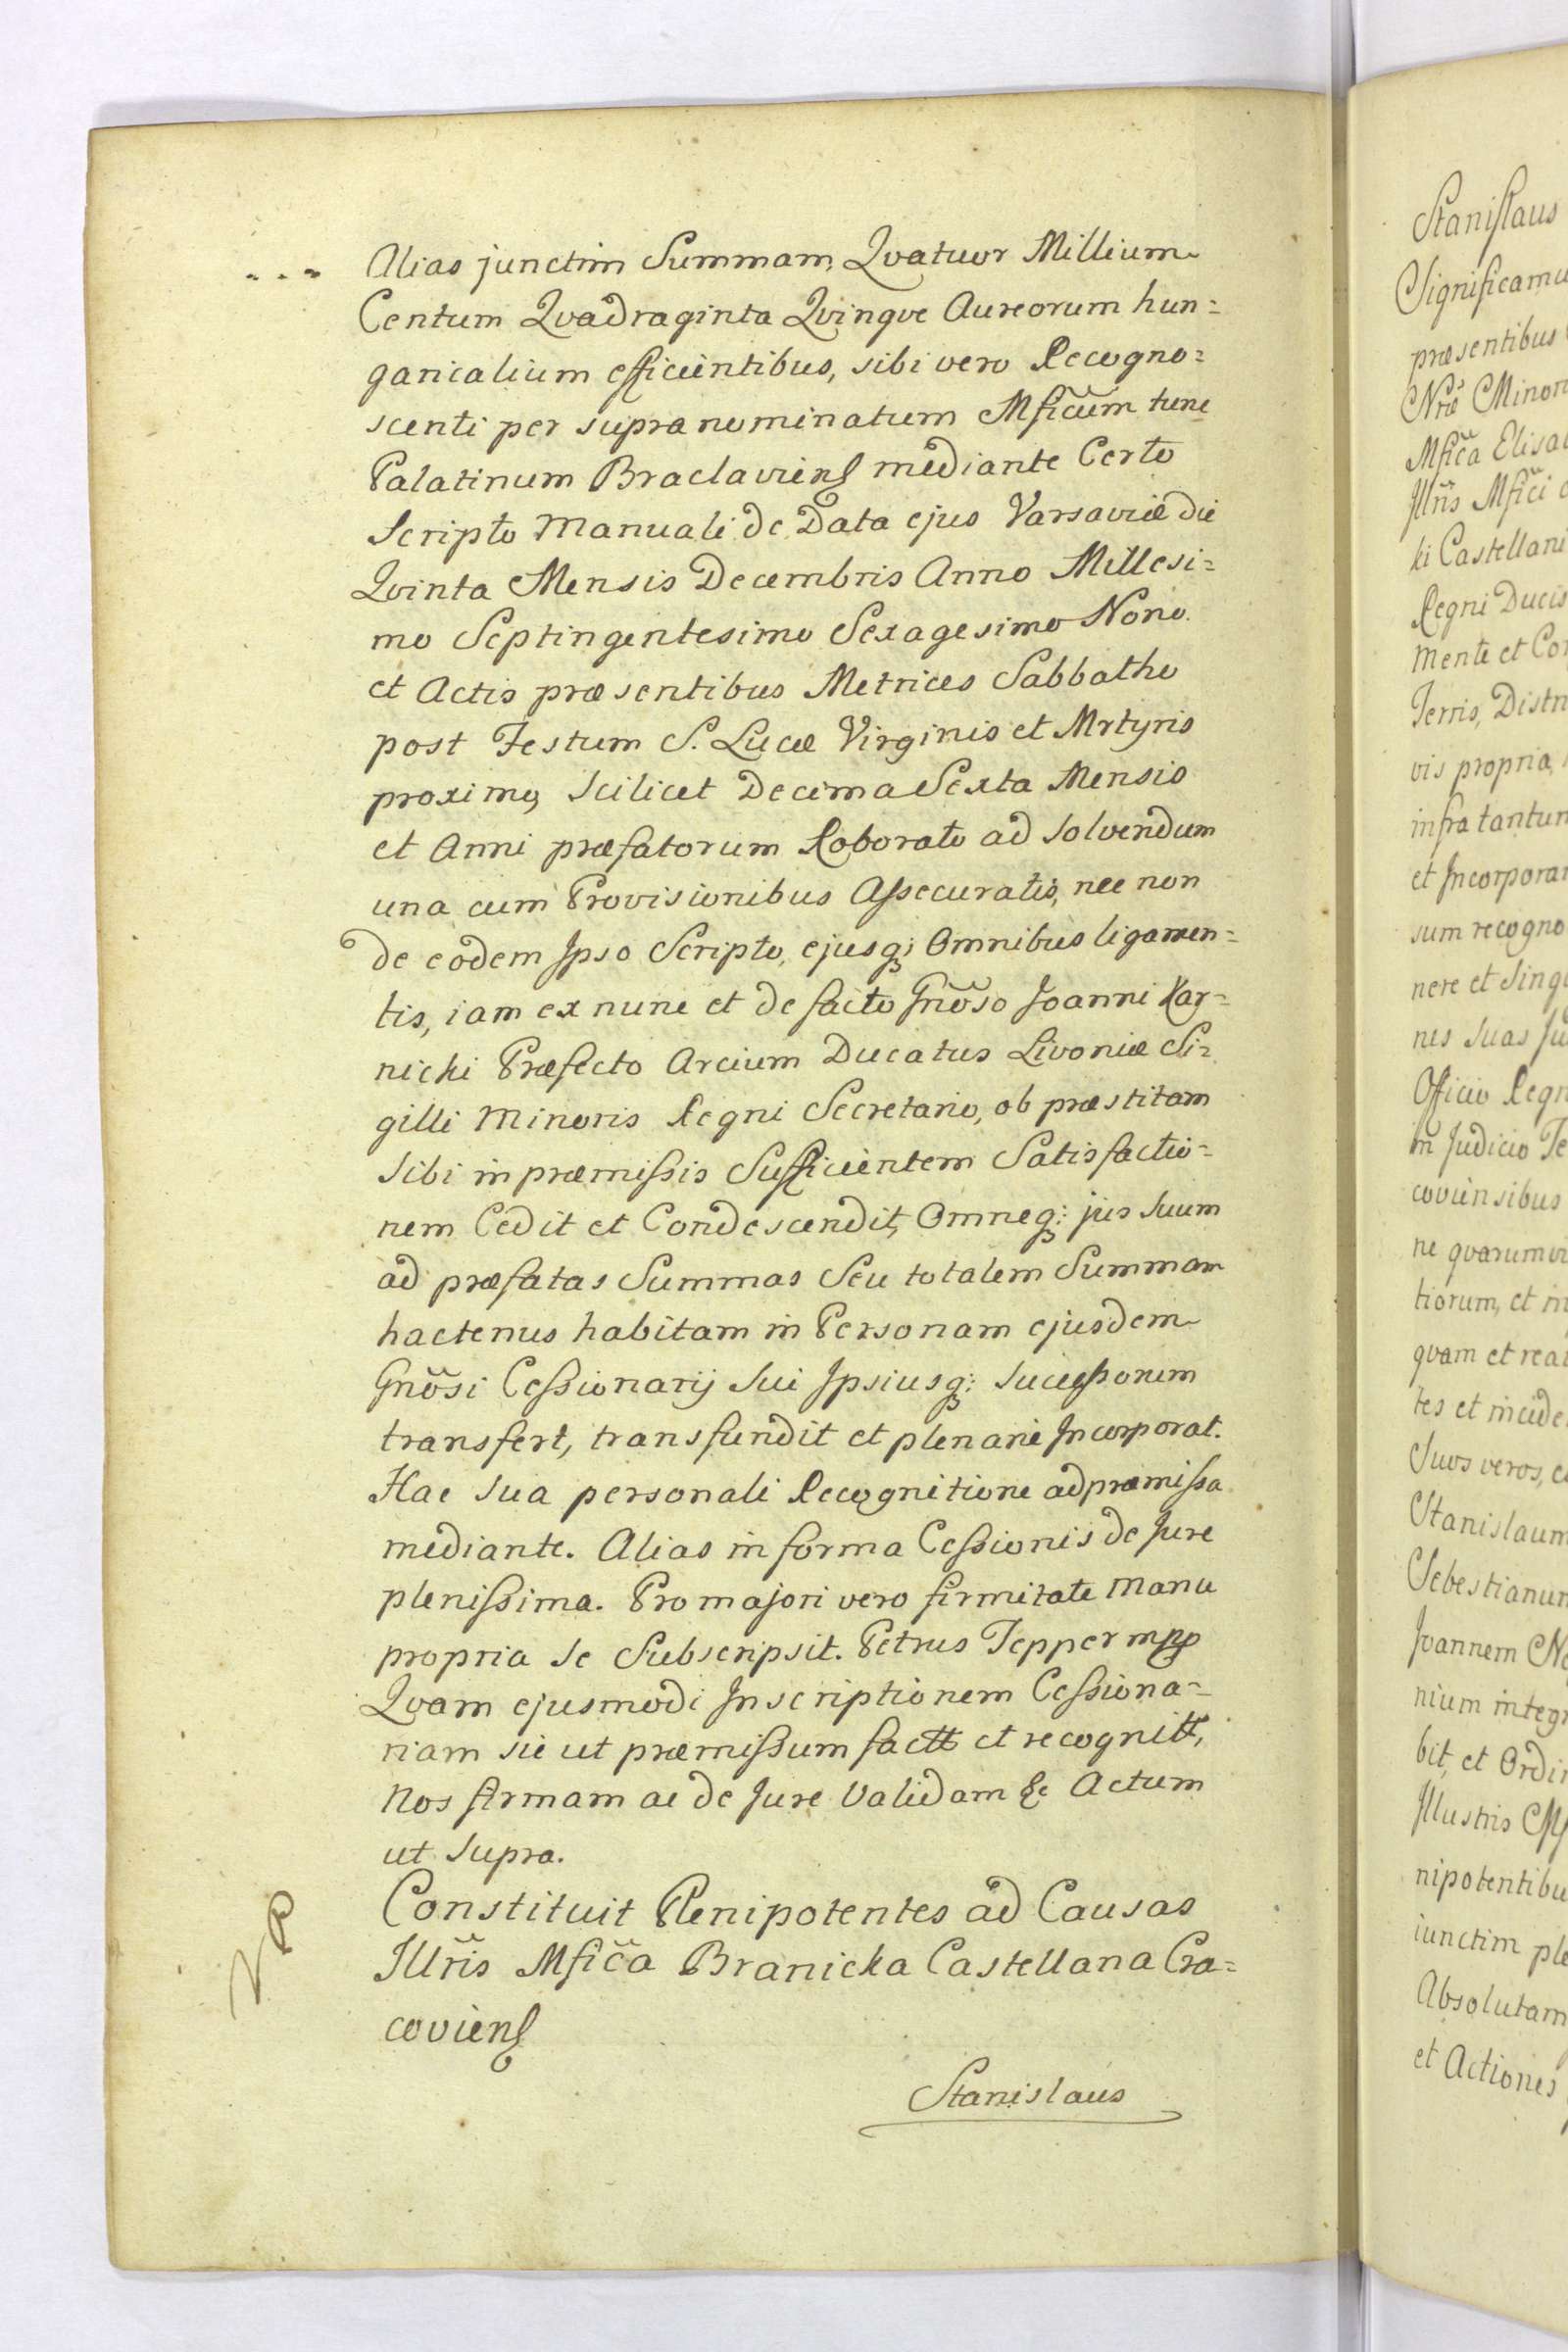 ... Alias junctim Summam Qvatuor Millium
Centum Qvadraginta Qvinqve Aureorum hun=
garicalium efficientibus, sibi vero Recogno=
scenti per supra nominatum Mficum tunc
Palatinum Braclaviens mediante Certo
Scripto Manuali de Data ejus Varsaviæ die
Qvinta Mensis Decembris Anno Millesi=
mo Septingentesimo Sexagesimo Nono
et Actis præsentibus Metrices Sabbatho
post Festum S. Luciæ Virginis et Mrtyris
proximo, Scilicet Decima Sexta Mensis
et Anni præfatorum Roborato ad Solvendum
una cum Provisionibus Assecuratis, nec non
de eodem Ipso Scripto, ejusq; Omnibus ligamen=
tis, iam ex nunc et de facto Gnõso Joanni Kar=
nicki Præfecto Arcium Ducatus Livoniæ Si=
gilli Minoris Regni Secretario, ob præstitam
Sibi in præmissis Sufficientem Satisfactio=
nem Cedit et Condescendit, Omneq; jus Suum
ad præfatas Summas Seu totalem Summam
hactenus habitam in Personam ejusdem
Gnõsi Cessionarij Sui Ipsiusq; Sucessorum
transfert, transfundit et plenarie Incorporat.
Hac Sua personali Recognitione ad præmissa
mediante. Alias in forma Cessionis de Jure
plenissima. Pro majori vero firmitate Manu
propria Se Subscripsit. Petrus Tepper mpp
Qvam ejusmodi Inscriptionem Cessiona=
riam sic ut præmissum factt et recognitt,
Nos firmam ac de Jure Validam &c Actum
ut Supra.
Constituit Plenipotentes ad Causas
Illr̃is Mfic̃a Branicka Castellana Cra=
coviens
Stanislaus
Stanislaus
Significamu
præsentibus
Nræ Minor
Mfica Elisa
Illris Mfici
ki Castellani
Regni Ducis
Mente et Con
Terris, Distri
vis propria,
infra tantum
et Incorporar
sum recogno
nere et Singu
nes Suas
Officio Regn
in Judicio Te
coviensibus
ne qvarumvi
tiorum, et in
qvam et rea
tes et incide
Suos veros,
Stanislaum
Sebestianum
Joannem
nium integr
bit, et Ordin
Illustris
nipotentibu
iunctim ple
Absolutam
et Actiones